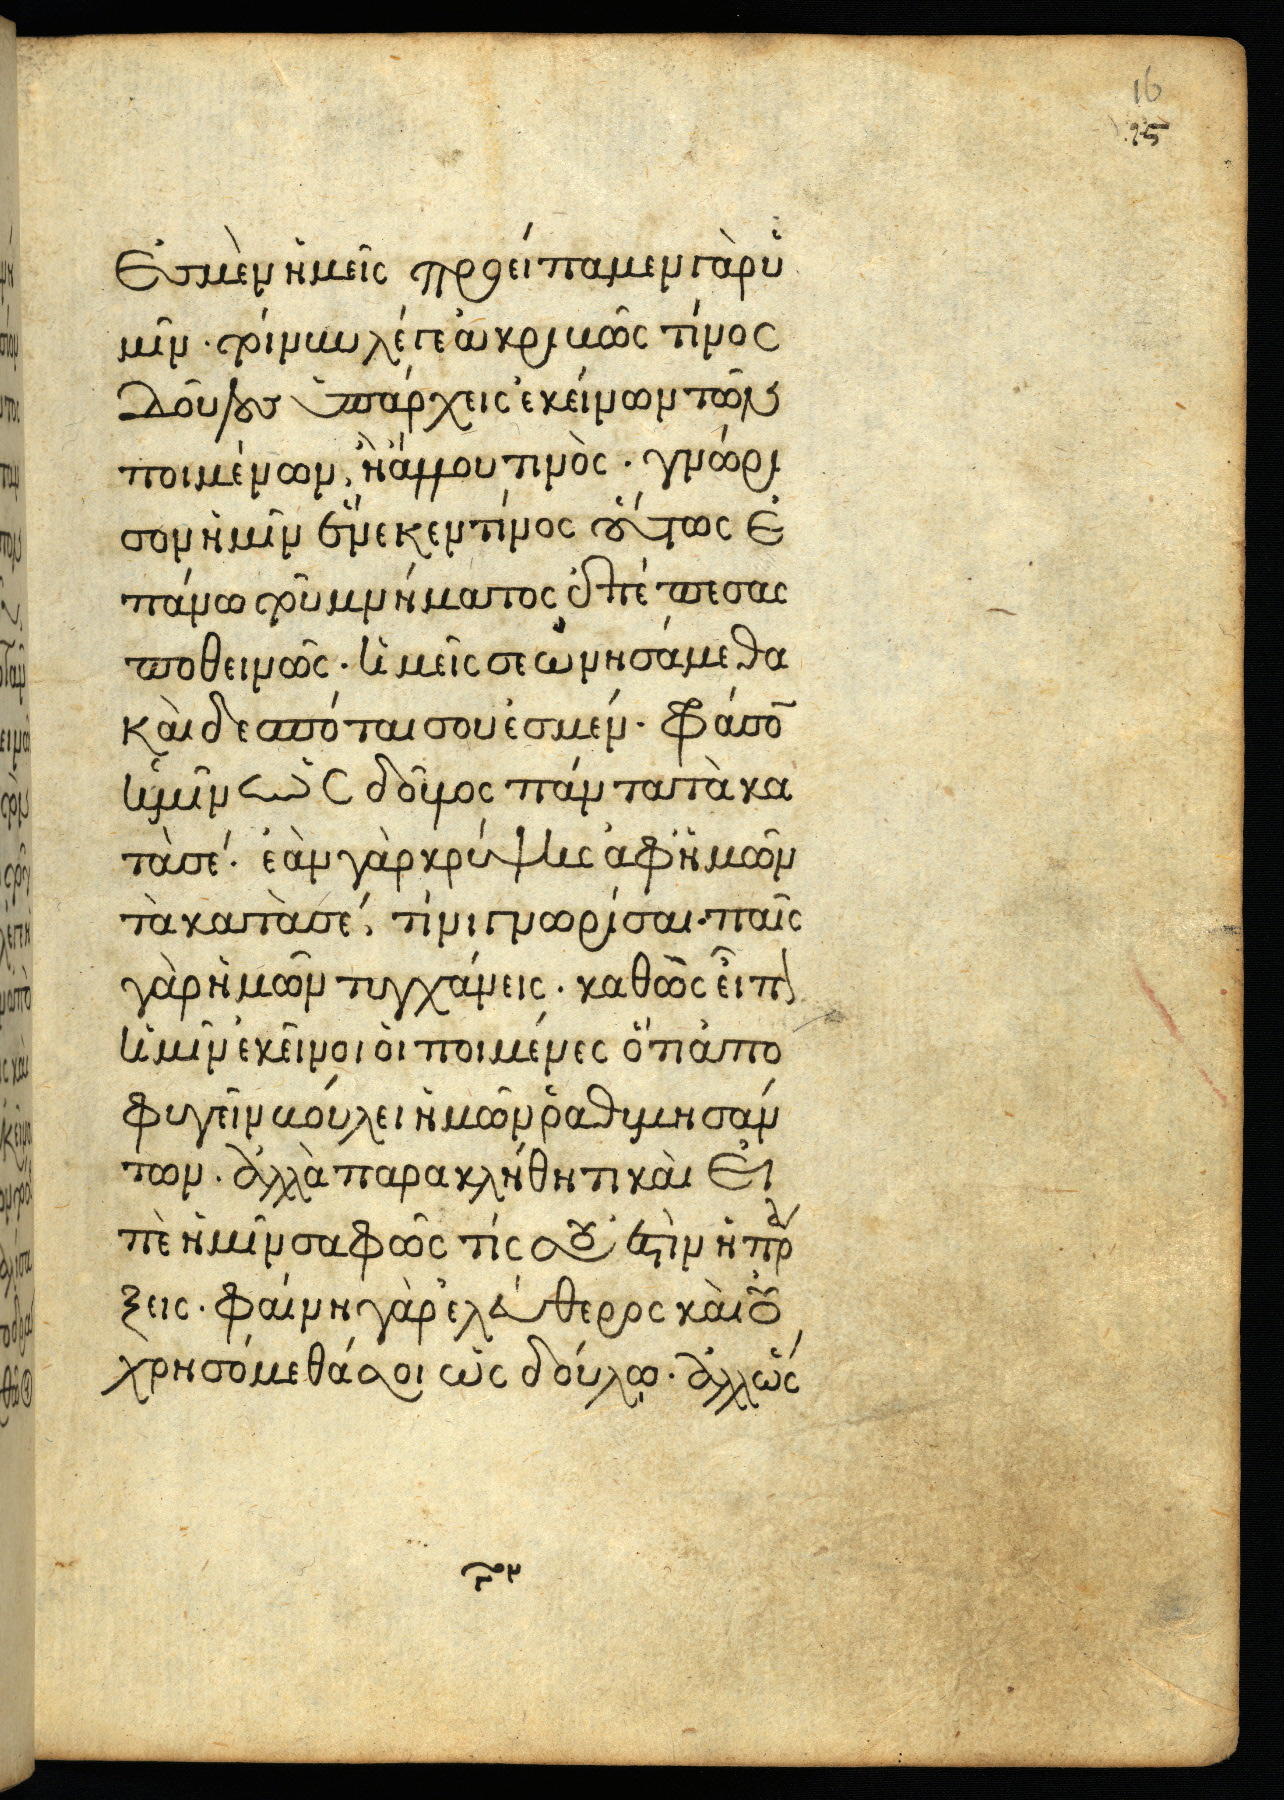 16
25
ἐσμὲν ἡμεῖς προείπαμεν γὰρ ὑ
μῖν. τοίνυν λέγε ἀκριβῶς τίνος
δοῦλος ὑπάρχεις ἐκείνων τῶν
ποιμένων, ἢ ἄλλου τινὸς. γνώρι
σον ἡμῖν ἕνεκεν τίνος οὕτως ἐ
πάνω τοῦ μνήματος ἐπέπεσας
ποθεινῶς. ἡμεῖς σε ὠνησάμεθα
καὶ δεσπόται σου ἐσμέν. θάρσο
ἡμῖν ὡς δοῦλος πάντα τὰ κα
τὰ σέ. ἐὰν γὰρ κρύψῃς ἀφ ἡμῶν
τὰ κατὰ σέ, τίνι γνωρίσαι. παῖς
γὰρ ἡμῶν τυγχάνεις. καθὼς εἶπον
ἡμῖν ἐκεῖνοι οἱ ποιμένες ὅτι ἀπο
φυγεῖν βούλει ἡμῶν ῥαθυμησάν
των. ἀλλὰ παρακλήθητι καὶ εἰ
πὲ ἡμῖν σαφῶς τίς σου ἐστὶν ἡ πρᾶ
ξεις. φαίνῃ γὰρ ἐλεύθερος καὶ οὐ
χρησόμεθά σοι ὡς δούλῳ. ἀλλ ὡς